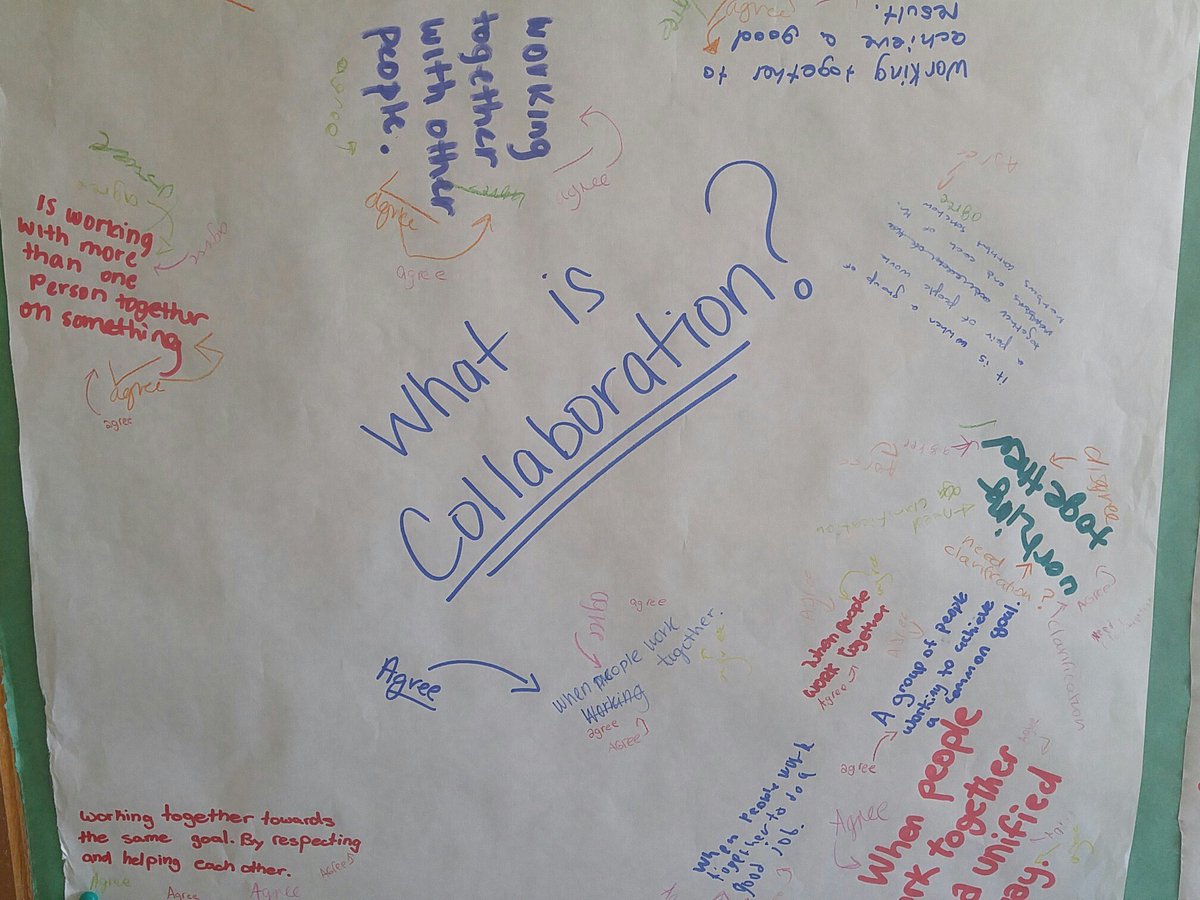 What is
Collaboration?
working
together
with other
people.
agree
agree
agree
agree
working together to
achieve a good
result.
agree
Is working
with more
than one
person together
on something
agree
agree
agree
agree
it is when a group of
a pair of people work
agree
working
together
disgree
need
clarification?
clarification
need clarification
Agree
when people
work together
Agree
A group of people
working to achieve
a common goal.
agree
Agree
when people work
together.
working
agree
agree
agree
Agree
When people work
together to do a
good job.
When people
work together
a unified
way.
Agree
working together towards
the same goal. By respecting
and helping each other.
Agree
Agree
Agree
Agree